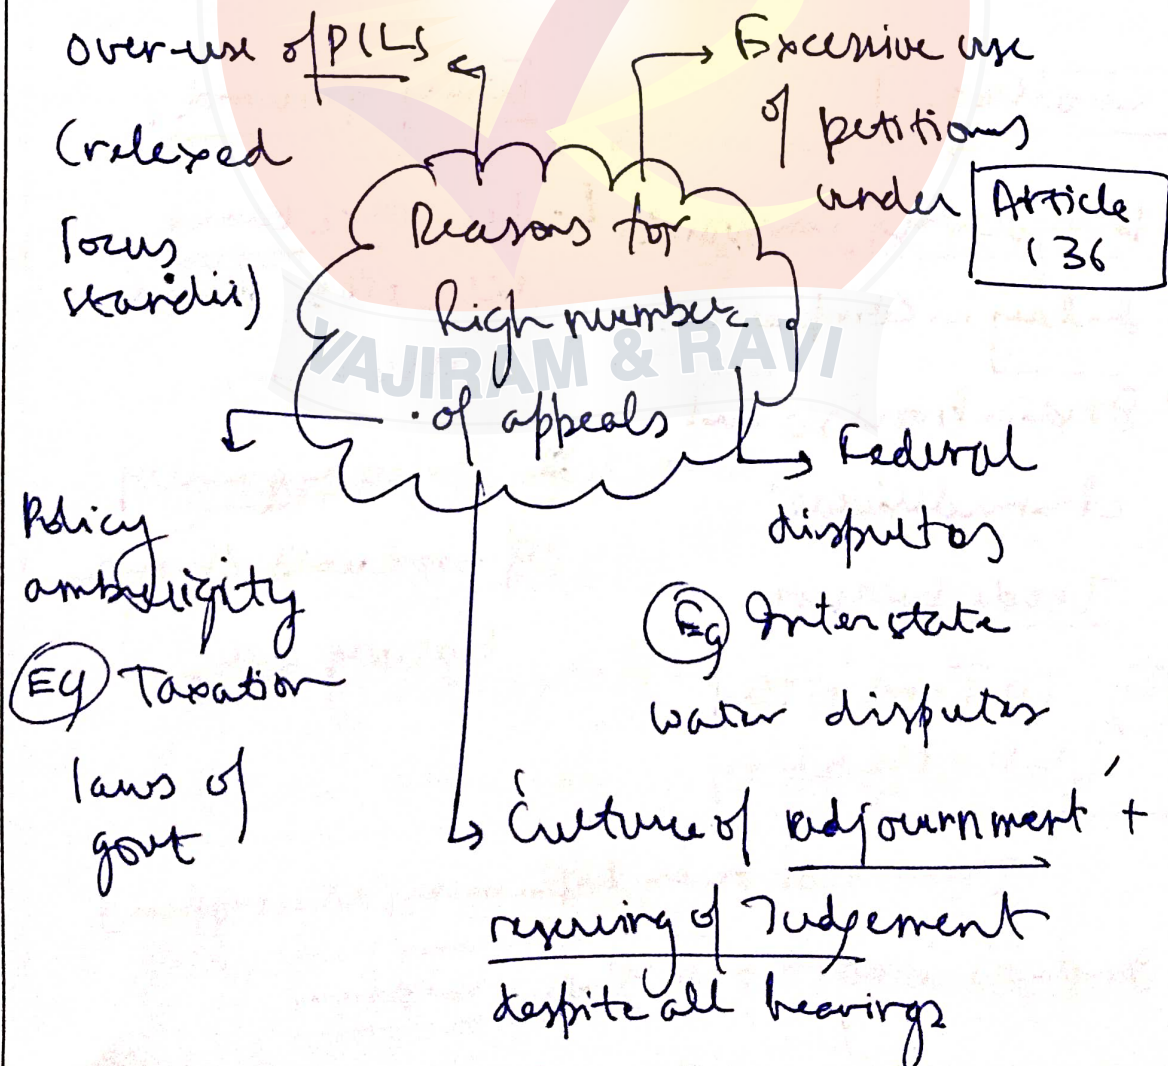 Over-use of PILs
(relaxed
locus
standii)
Excessive use
of petitions
under Article
136
Reasons for
high number
of appeals
VAJIRAM & RAVI
Policy
ambiguity
Eg Taxation
laws of
govt
Federal
disputes
Eg Interstate
water disputes
'Culture of adjournment' +
reserving of Judgement
despite all hearings